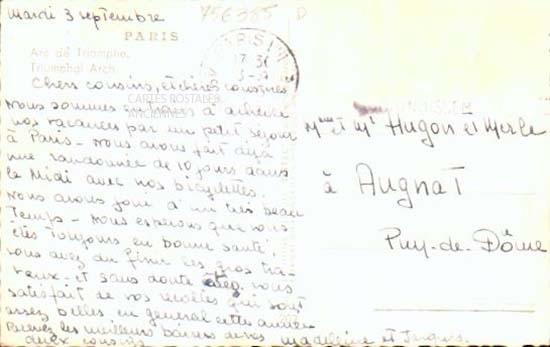 Mardi 3 septembre
756385 D
PARIS
Arc de Triomphe.
Triumphal Arch.
PARIS
17 30
3-9
Chers cousins, et chères cousines
Nous sommes en train d'achever
nos vacances par un petit séjour
à Paris - Nous avons fait déjà
une randonnée de 10 jours dans
le Midi avec nos bicyclettes.
Nous avons joui d'un très beau
Temps - Nous espérons que vous
êtes Toujours en bonne santé,
vous avez du finir les gros tra-
vaux - et sans doute êtes vous
satisfait de vos récoltes qui sont
assez belles en général cette année
Recevez les meilleurs baisers de vos
deux cousins Madeleine et Jacques.
CARTES POSTALES
ANCIENNES
Mme et Mr Hugon et Merle
à Augnat
Puy-de-Dôme